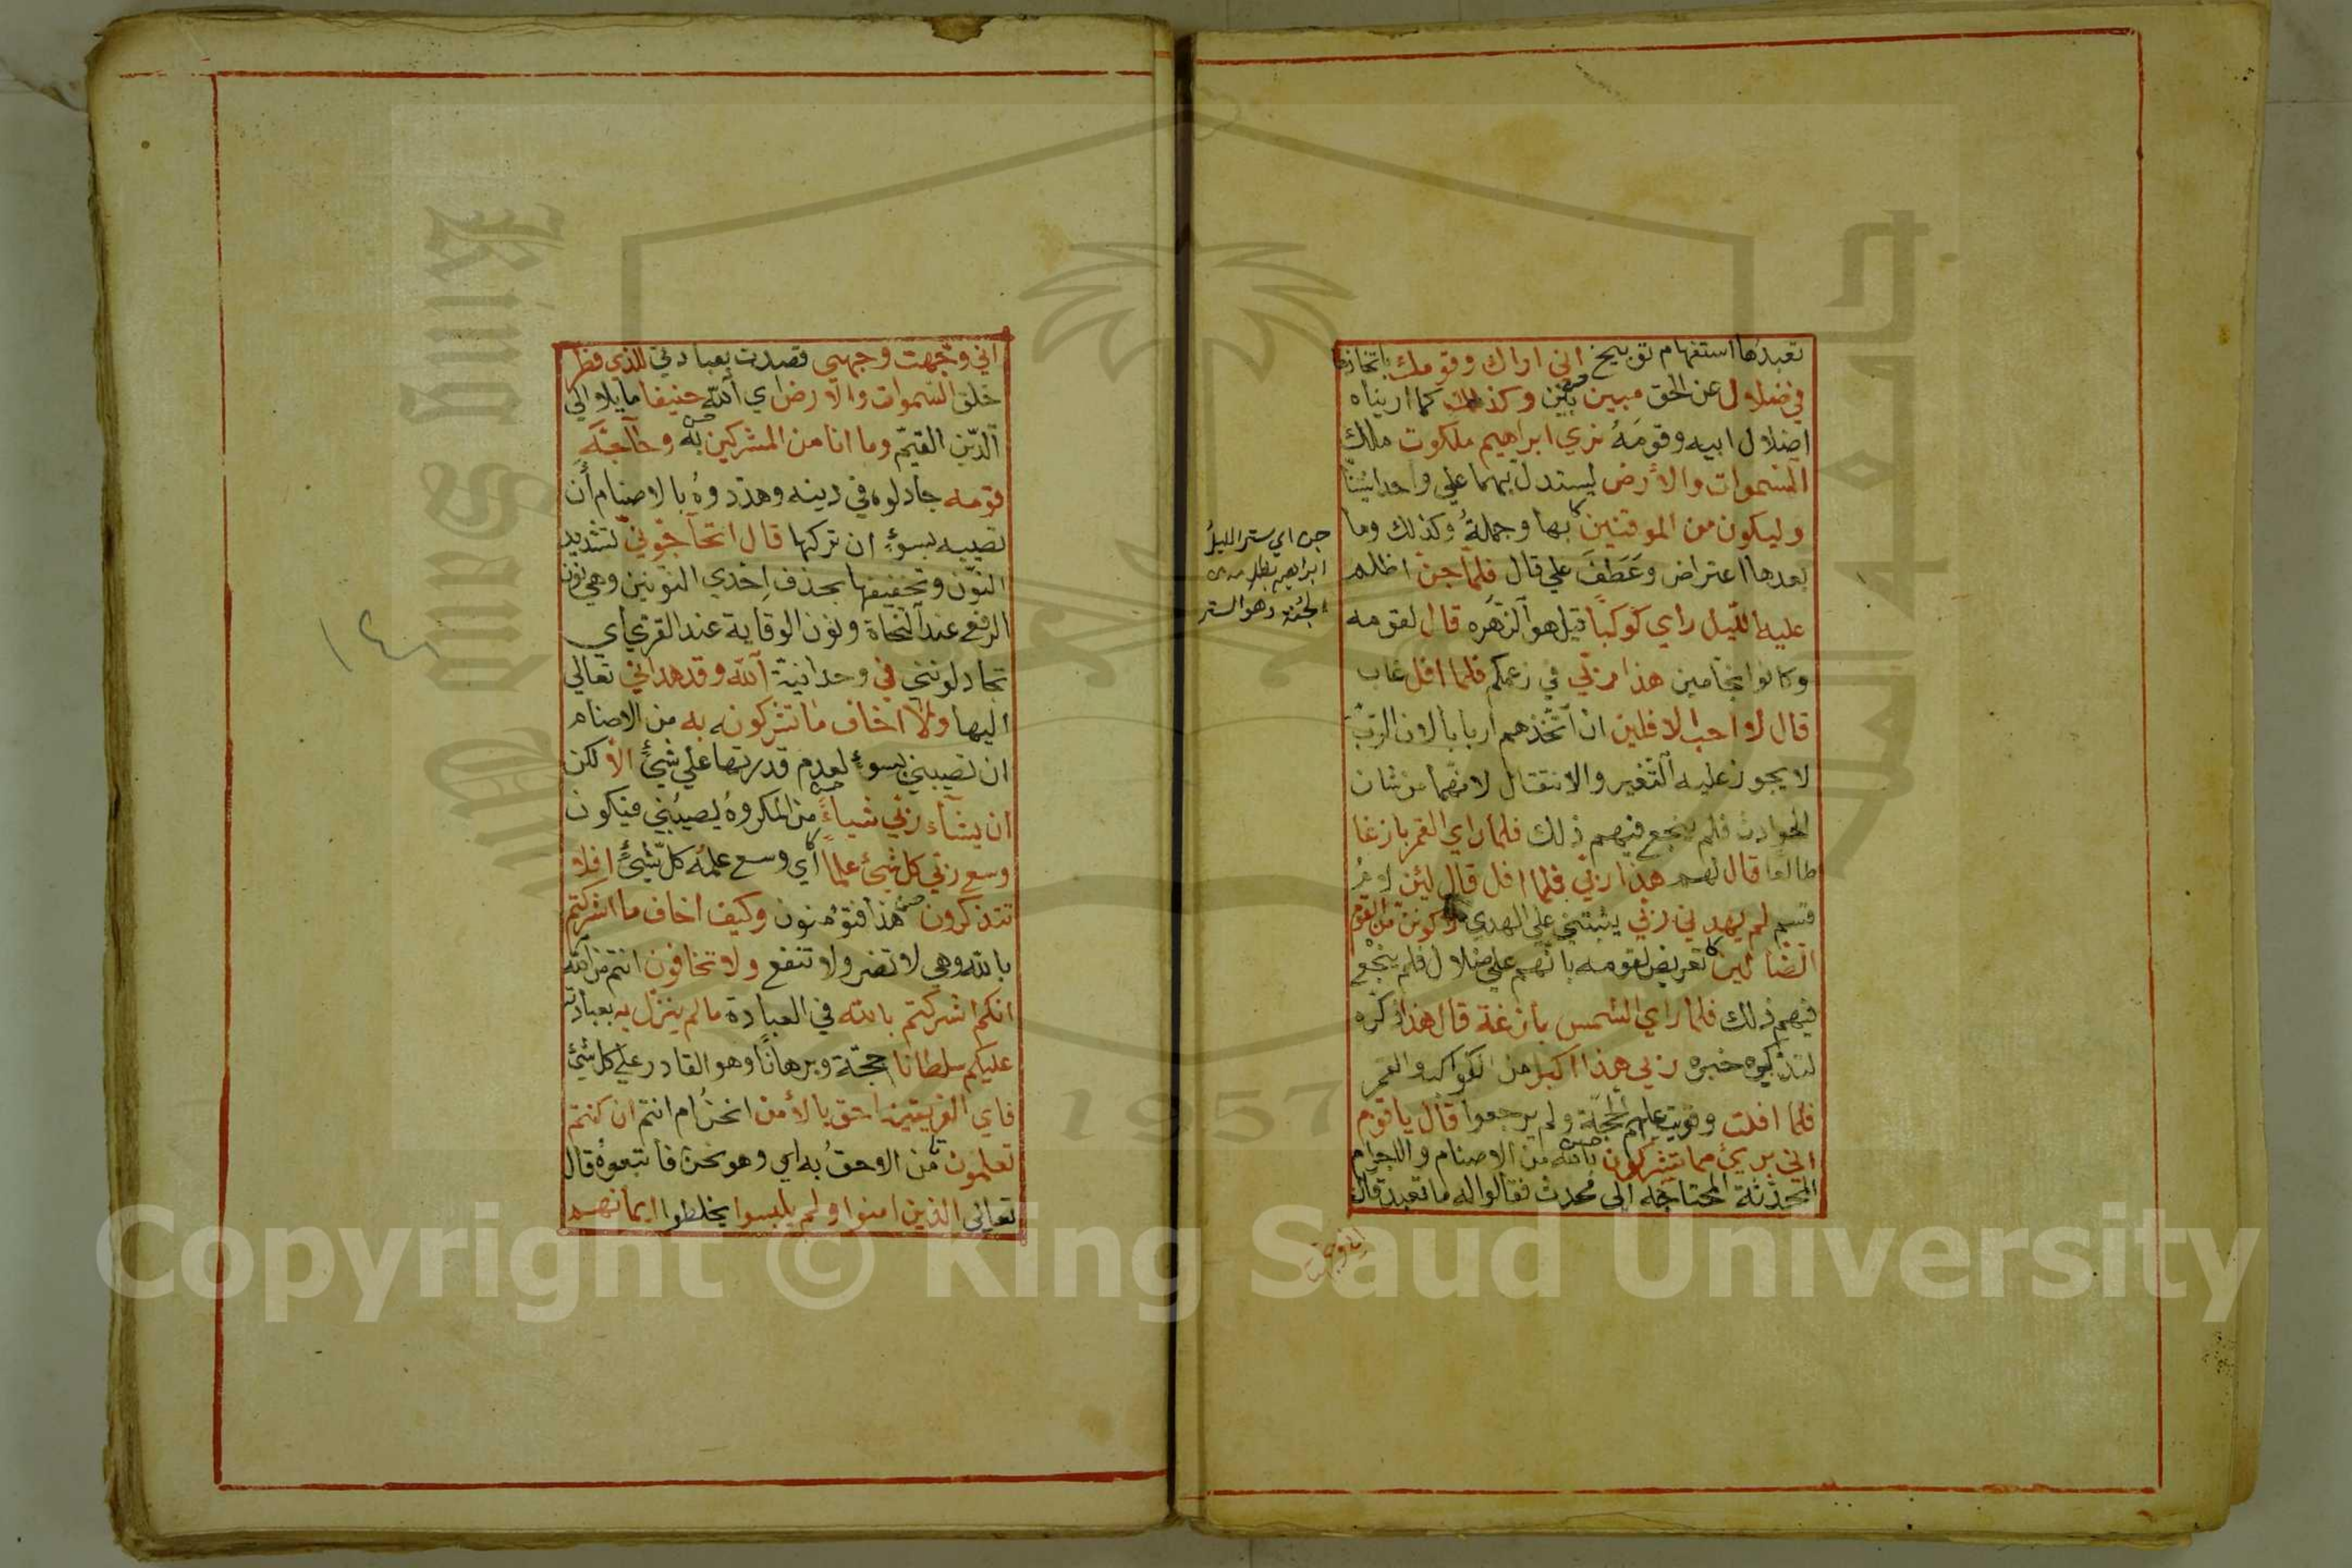 تعبدها استفهام توبيخ اني اراك وقومك باتخاذها
في ضلال عن الحق مبين بين وكذلك كما اريناه
اضلال ابيه وقومه نري ابراهيم ملكوت ملك
السموات والارض ليستدل بهما علي واحدانيتنا
وليكون من الموقنين بها وجملة وكذلك وما
بعدها اعتراض وعطف علي قال فلما جن اظلم
عليه الليل راي كوكبا قيل هو الزهره قال لقومه
وكانوا نجامين هذا ربي في زعمكم فلما افل غاب
قال لا احب الافلين ان اتخذهم اربابا لان الرب
لا يجوز عليه التغير والانتقال لانهما من شان
الحوادث فلم ينجع فيهم ذلك فلما راي القمر بازغا
طالعا قال لهم هذا ربي فلما افل قال لئن لام
قسم لم يهدني ربي يثبتني علي الهدي لاكونن من القوم
الضالين تعريض لقومه بانهم علي ضلال فلم ينجع
فيهم ذلك فلما راي الشمس بازغة قال هذا ذكره
لتذكيره خبره ربي هذا اكبر من الكواكب والقمر
فلما افلت وقويت عليهم الحجة ولم يرجعوا قال ياقوم
اني بريئ مما تشركون بالله من الاصنام والاجرام
المحدثة المحتاجة الي محدث فقالوا له ما تعبد قال
اني وجهت
جن اي ستر الليل
ابراهيم بظلامه من
الجنة وهو الستر
اني وجهت وجهي قصدت بعبادتي للذي فطر
خلق السموات والارض اي الله حنيفا مايلا الي
الدين القيم وما انا من المشركين به وحاجه
قومه جادلوه في دينه وهددوه بالاصنام أن
تصيبه بسوء ان تركها قال اتحاجوني بتشديد
النون وتخفيفها بحذف إحدي النونين وهي نون
الرفع عند النحاة ونون الوقاية عند القرٰي اي
تجادلونني في وحدانية الله وقد هداني تعالي
اليها ولا اخاف ما تشركونه به من الاصنام
ان تصيبني بسوء لعدم قدرتها علي شيئ الا لكن
ان يشاء ربي شياء من المكروه يصيبني فيكون
وسع ربي كل شيئ علما اي وسع علمه كل شيئ افلا
تتذكرون هذا فتؤمنون وكيف اخاف ما اشركتم
بالله وهي لا تضر ولا تنفع ولا تخافون انتم من الله
انكم اشركتم بالله في العبادة ما لم ينزل به بعبادته
عليكم سلطانا حجة وبرهانا وهو القادر علي كل شيئ
فاي الفريقين احق بالأمن انحن ام انتم ان كنتم
تعلمون من الاحق به اي وهو نحن فاتبعوه قال
تعالي الذين امنوا ولم يلبسوا يخلطوا ايمانهم
١٤٨
King Saud
1957
Copyright © King Saud University